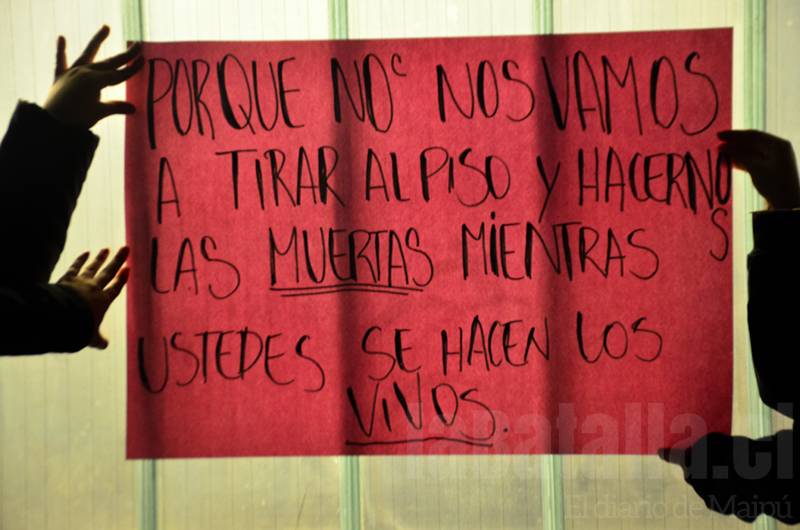 PORQUE NO NOS VAMOS
A TIRAR AL PISO Y HACERNOS
LAS MUERTAS MIENTRAS
USTEDES SE HACEN LOS
VIVOS.
labatalla.cl
El diario de Maipú